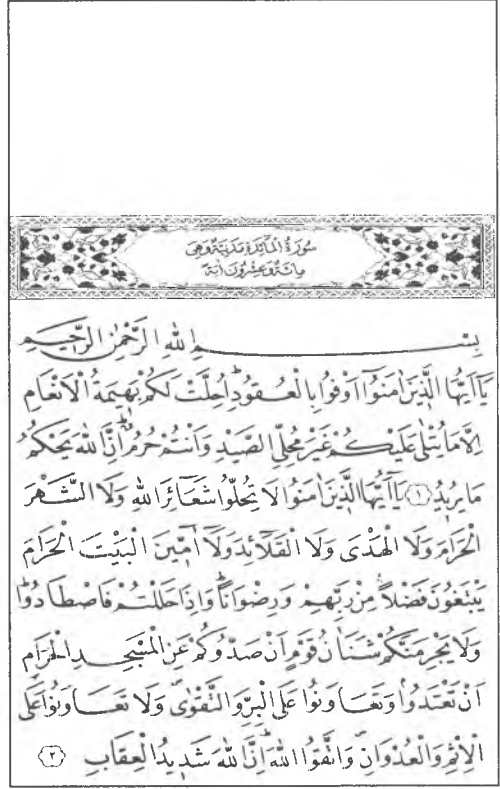 سُورَةُ الْمَائِدَةِ مَدَنِيَّةٌ وَهِيَ
مِائَةٌ وَعِشْرُونَ اٰيَةً
بِسْــــــــمِ اللّٰهِ الرَّحْمٰنِ الرَّح۪يمِ
يَٓا اَيُّهَا الَّذ۪ينَ اٰمَنُٓوا اَوْفُوا بِالْعُقُودِۜ اُحِلَّتْ لَكُمْ بَه۪يمَةُ الْاَنْعَامِ
اِلَّا مَا يُتْلٰى عَلَيْكُمْ غَيْرَ مُحِلِّي الصَّيْدِ وَاَنْتُمْ حُرُمٌۜ اِنَّ اللّٰهَ يَحْكُمُ
مَا يُر۪يدُ ﴿١﴾ يَٓا اَيُّهَا الَّذ۪ينَ اٰمَنُوا لَا تُحِلُّوا شَعَٓائِرَ اللّٰهِ وَلَا الشَّهْرَ
الْحَرَامَ وَلَا الْهَدْيَ وَلَا الْقَلَٓائِدَ وَلَٓا اٰمّ۪ينَ الْبَيْتَ الْحَرَامَ
يَبْتَغُونَ فَضْلًا مِنْ رَبِّهِمْ وَرِضْوَانًاۜ وَاِذَا حَلَلْتُمْ فَاصْطَادُواۜ
وَلَا يَجْرِمَنَّكُمْ شَنَاٰنُ قَوْمٍ اَنْ صَدُّوكُمْ عَنِ الْمَسْجِدِ الْحَرَامِ
اَنْ تَعْتَدُواۢ وَتَعَاوَنُوا عَلَى الْبِرِّ وَالتَّقْوٰىۖ وَلَا تَعَاوَنُوا عَلَى
الْاِثْمِ وَالْعُدْوَانِۖ وَاتَّقُوا اللّٰهَۜ اِنَّ اللّٰهَ شَد۪يدُ الْعِقَابِ ﴿٢﴾